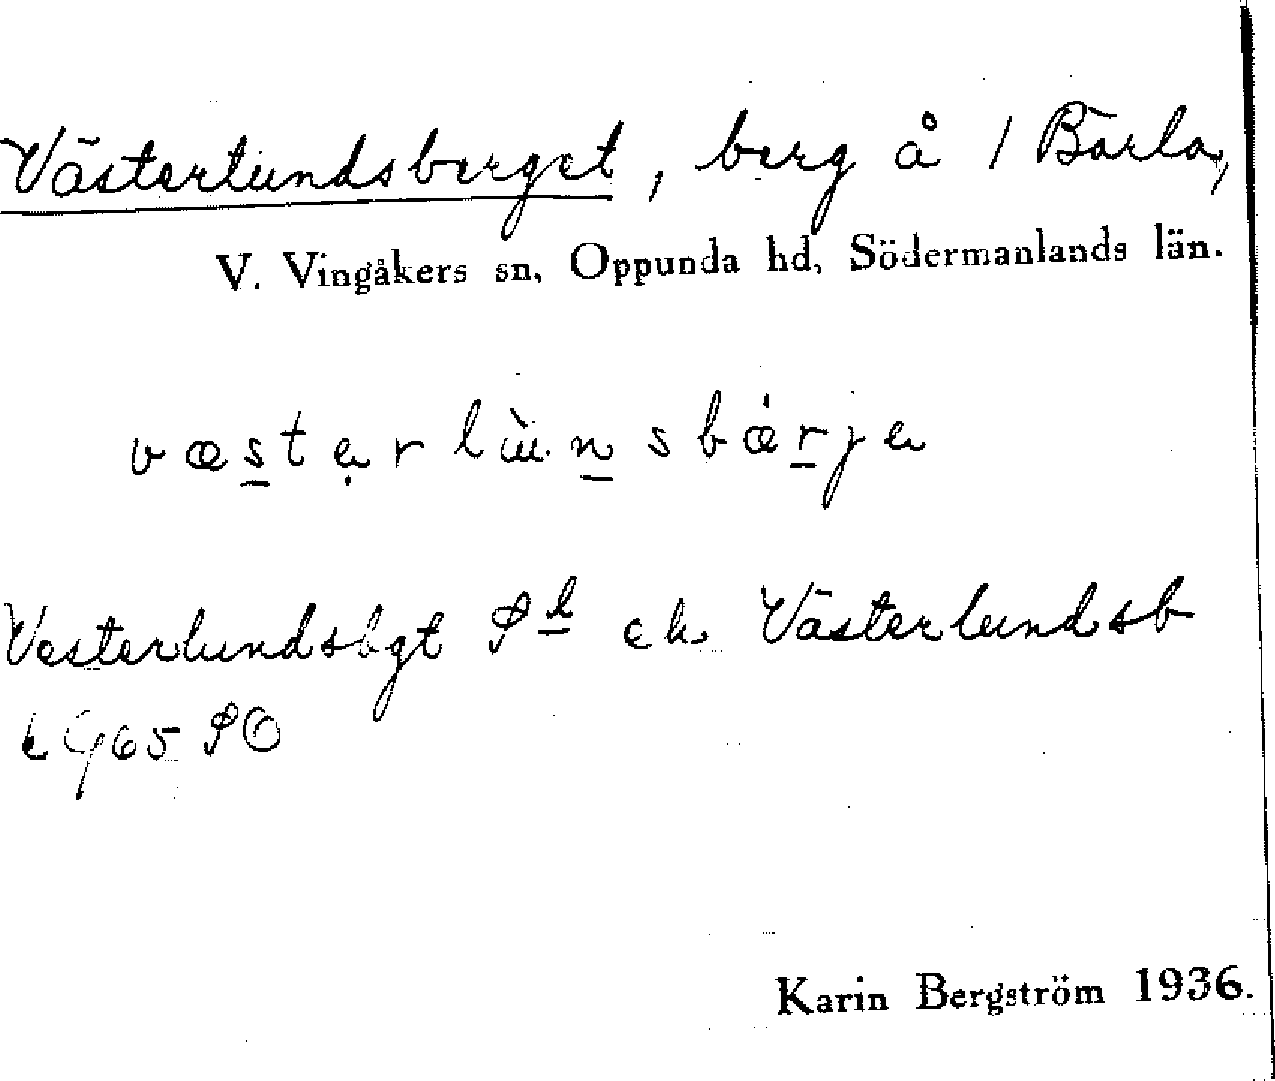 Västerlundsberget, berg å 1 Bärla,
V. Vingåkers sn, Oppunda hd, Södermanlands län.
væstərlùnsbǽrje
Vesterlundsbgt ek Västerlundsb
G65
Karin Bergström 1936.